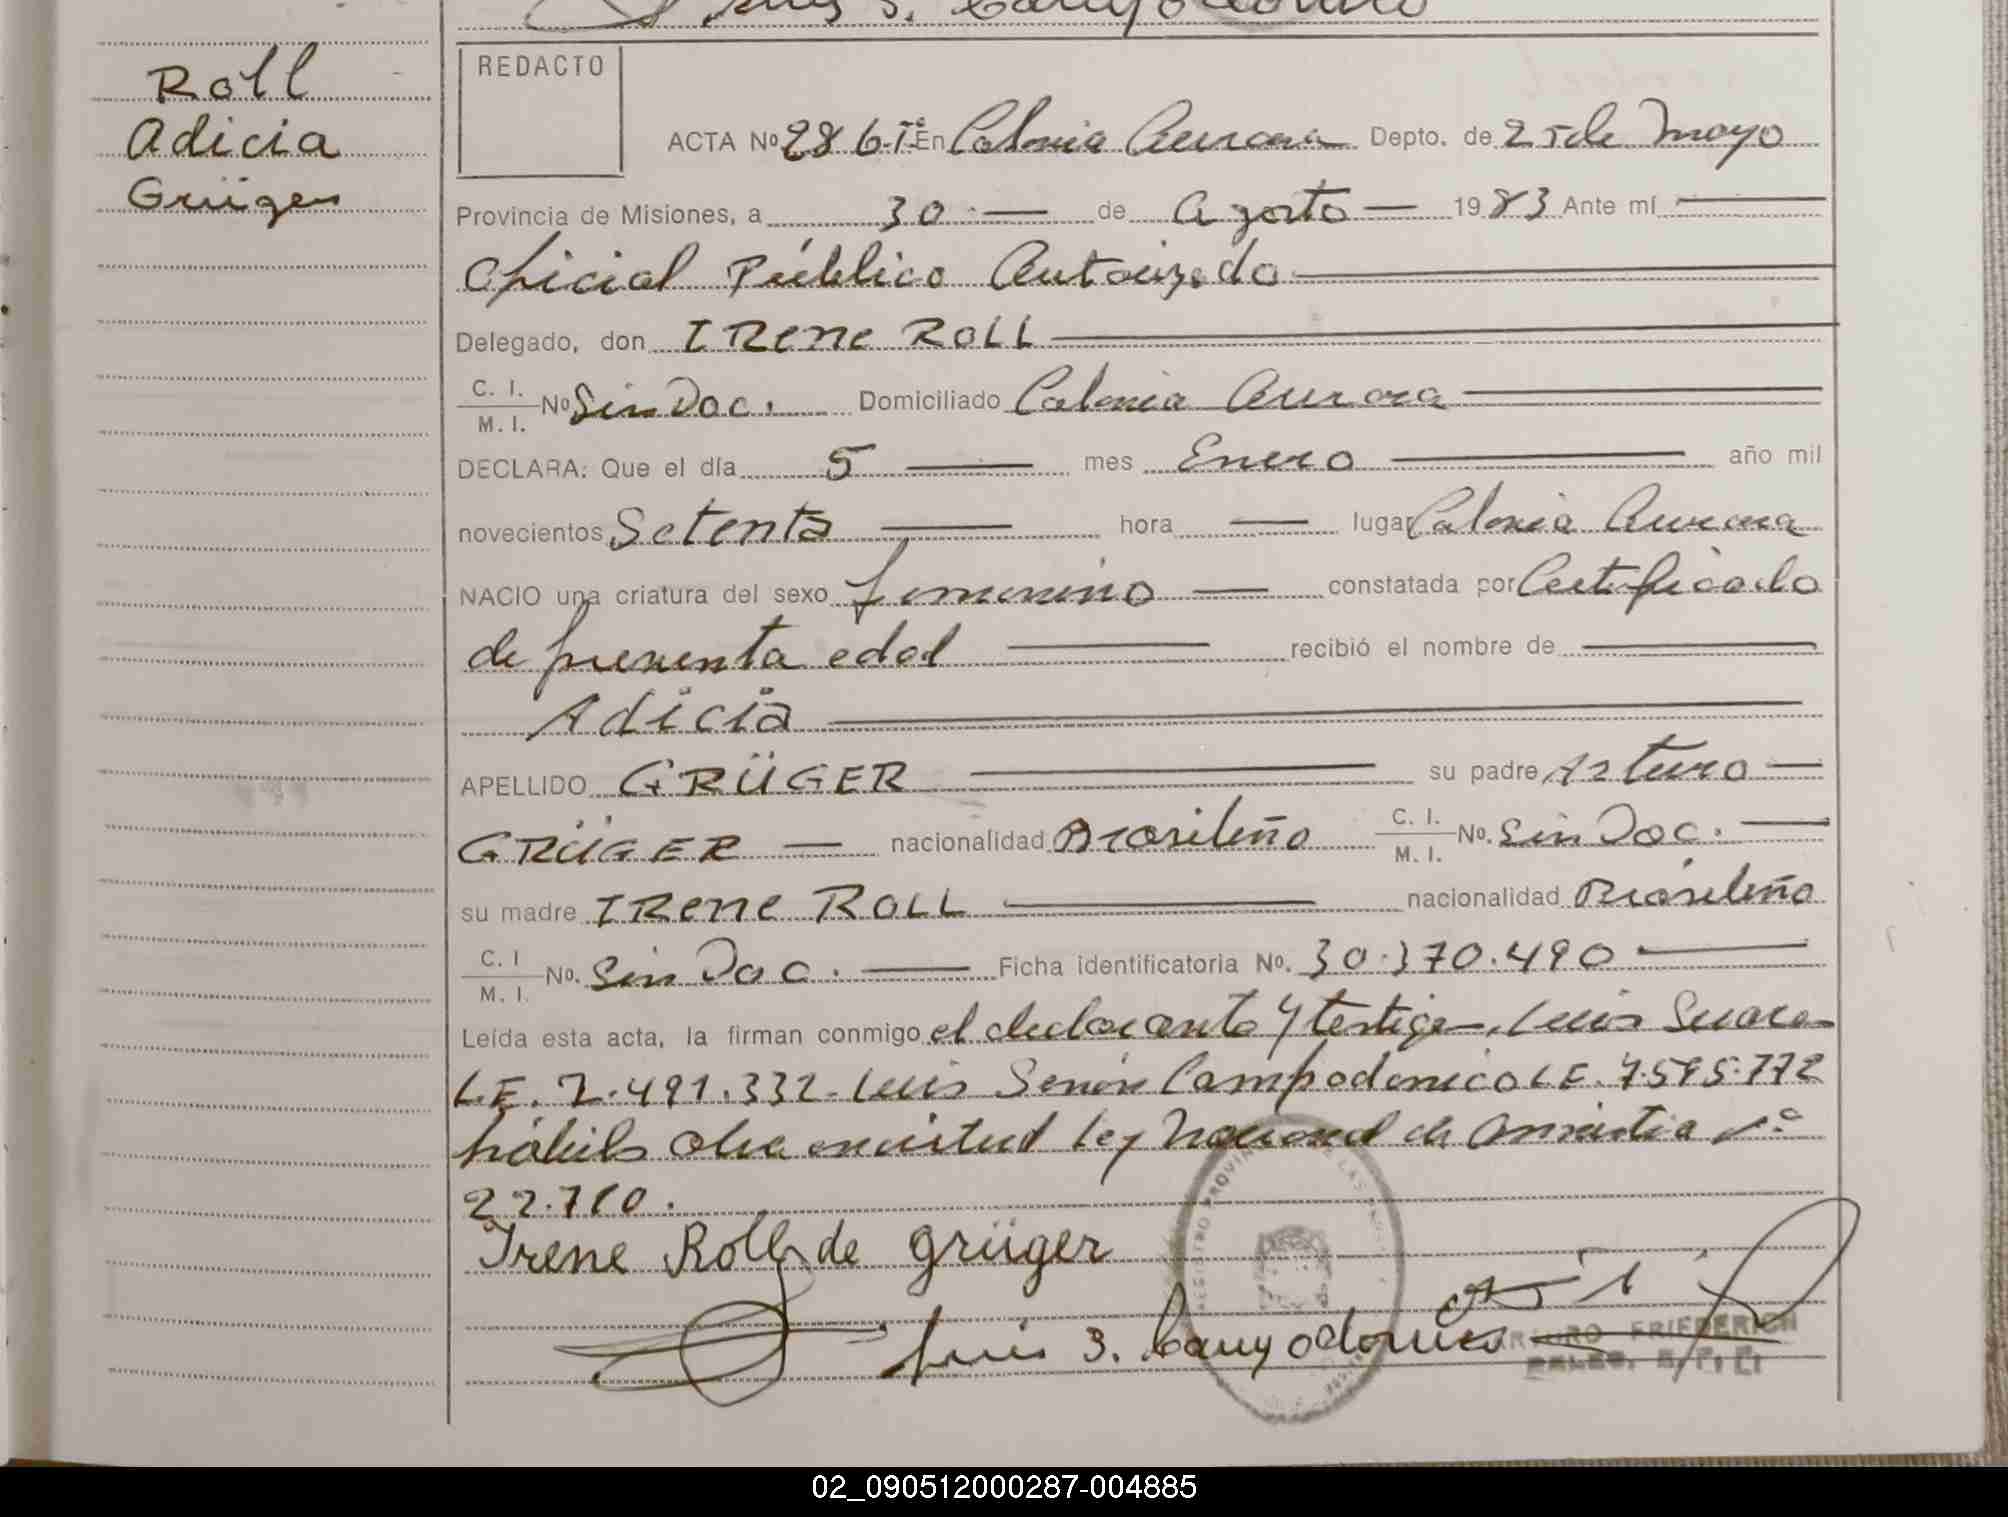 Roll
Adicia
Grüger
REDACTO
ACTA Nº 286-Tº En Colonia Aurora Depto. de 25 de Mayo
Provincia de Misiones, a 30 de Agosto 1983 Ante mí
Oficial Público Autorizado
Delegado, don IRENE ROLL
C. I.
M. I. Nº Sin Doc. Domiciliado Colonia Aurora
DECLARA: Que el día 5 mes Enero año mil
novecientos Setenta hora lugar Colonia Aurora
NACIO una criatura del sexo femenino constatada por Certificado
de presunta edad recibió el nombre de
Adicia
APELLIDO GRÜGER su padre Arturo
GRÜGER nacionalidad Brasileño C. I.
M. I. No. Sin Doc.
su madre IRENE ROLL nacionalidad Brasileño
C. I
M. I. No. Sin Doc. Ficha identificatoria No. 30.370.490
Leída esta acta, la firman conmigo el declarante y testigos, Luis Suarez
L.E. 7.491.332. Luis Senón Campodonico L.E. 7.595.772
hábiles obra en virtud Ley Nacional de Amnistia nº
22.710.
Irene Roll de grüger
Luis S. Campodonico
ARTURO FRIEDERICH